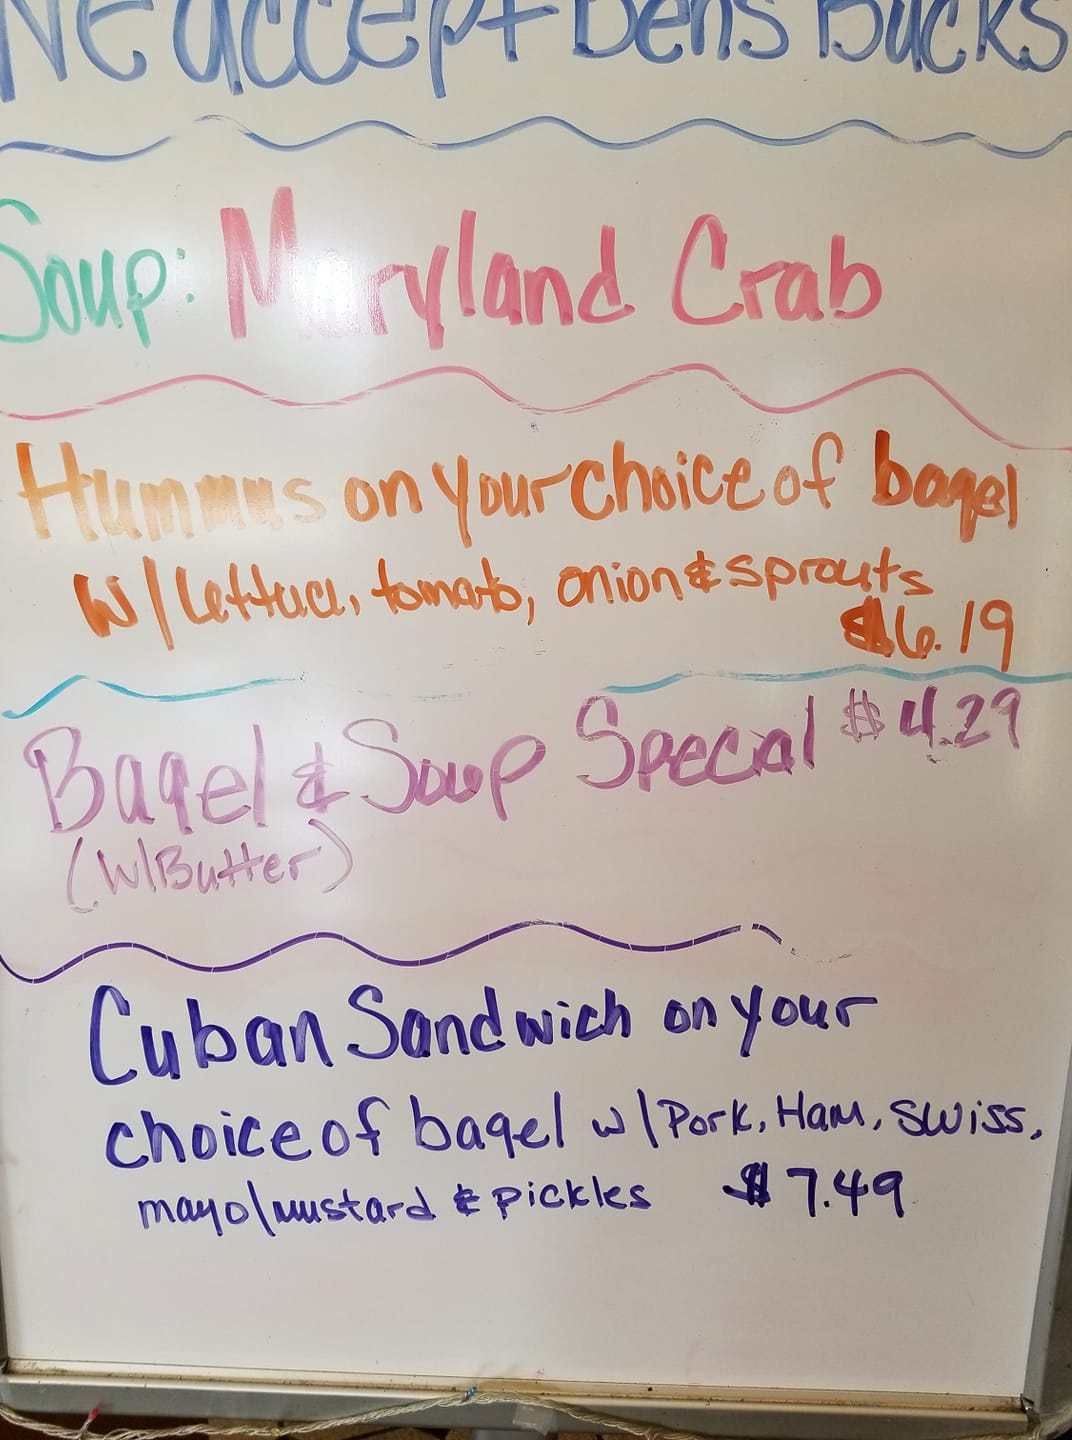 We accept Bens Bucks
Soup: Maryland Crab
Hummus on your choice of bagel
w/ lettuce, tomato, onion & sprouts
$6.19
Bagel & Soup Special $4.29
(w/Butter)
Cuban Sandwich on your
choice of bagel w/Pork, Ham, swiss,
mayo/mustard & pickles $7.49